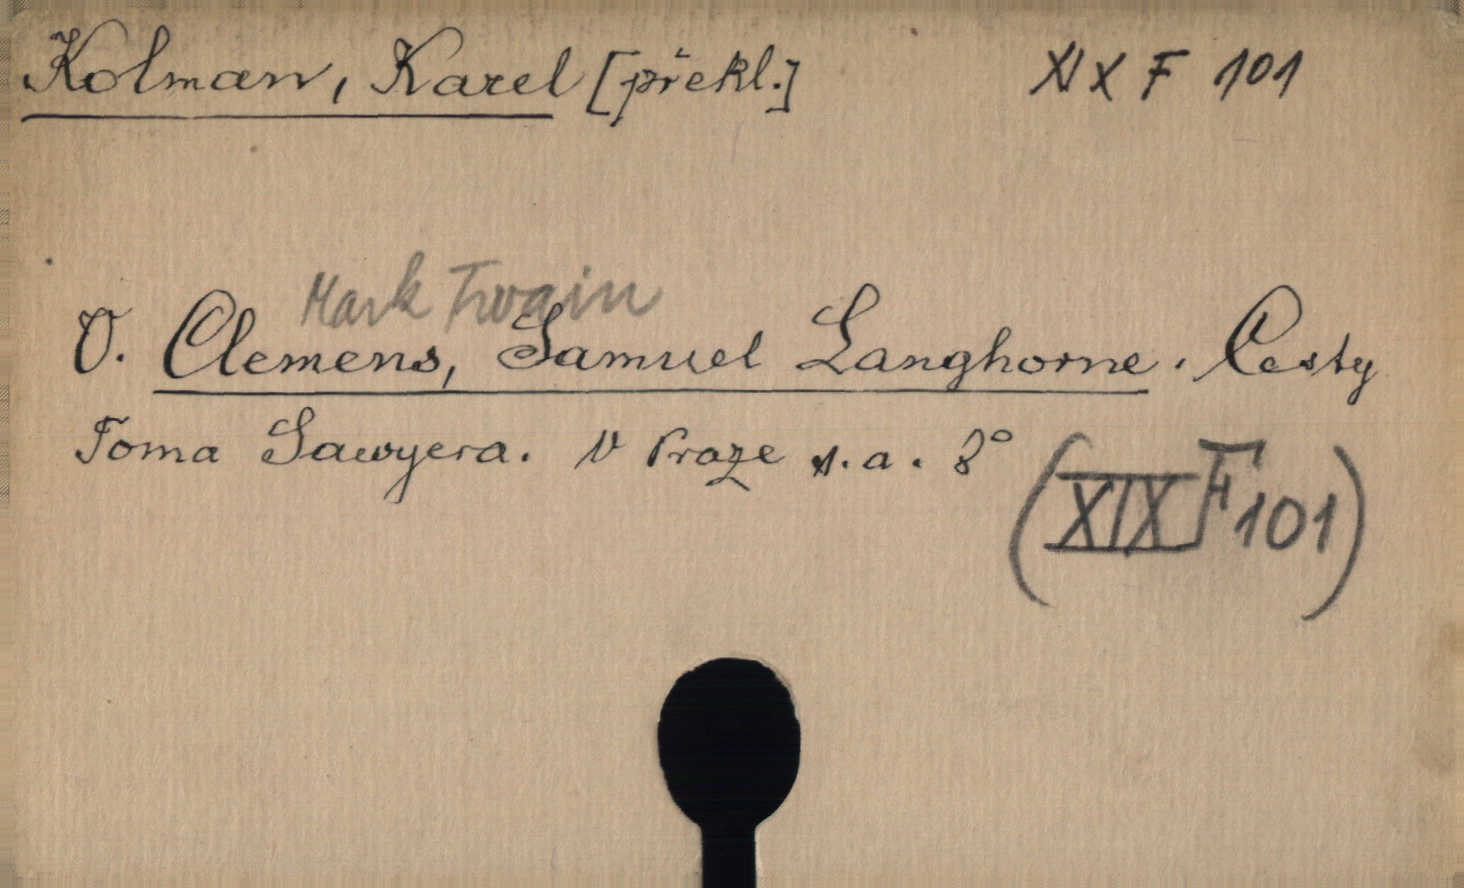 Kolman, Karel [překl.] XIX F 101
Mark Twain
V. Clemens, Samuel Langhorne. Cesty
Toma Sawyera. V Praze s.a. 8°
(XIX F 101)